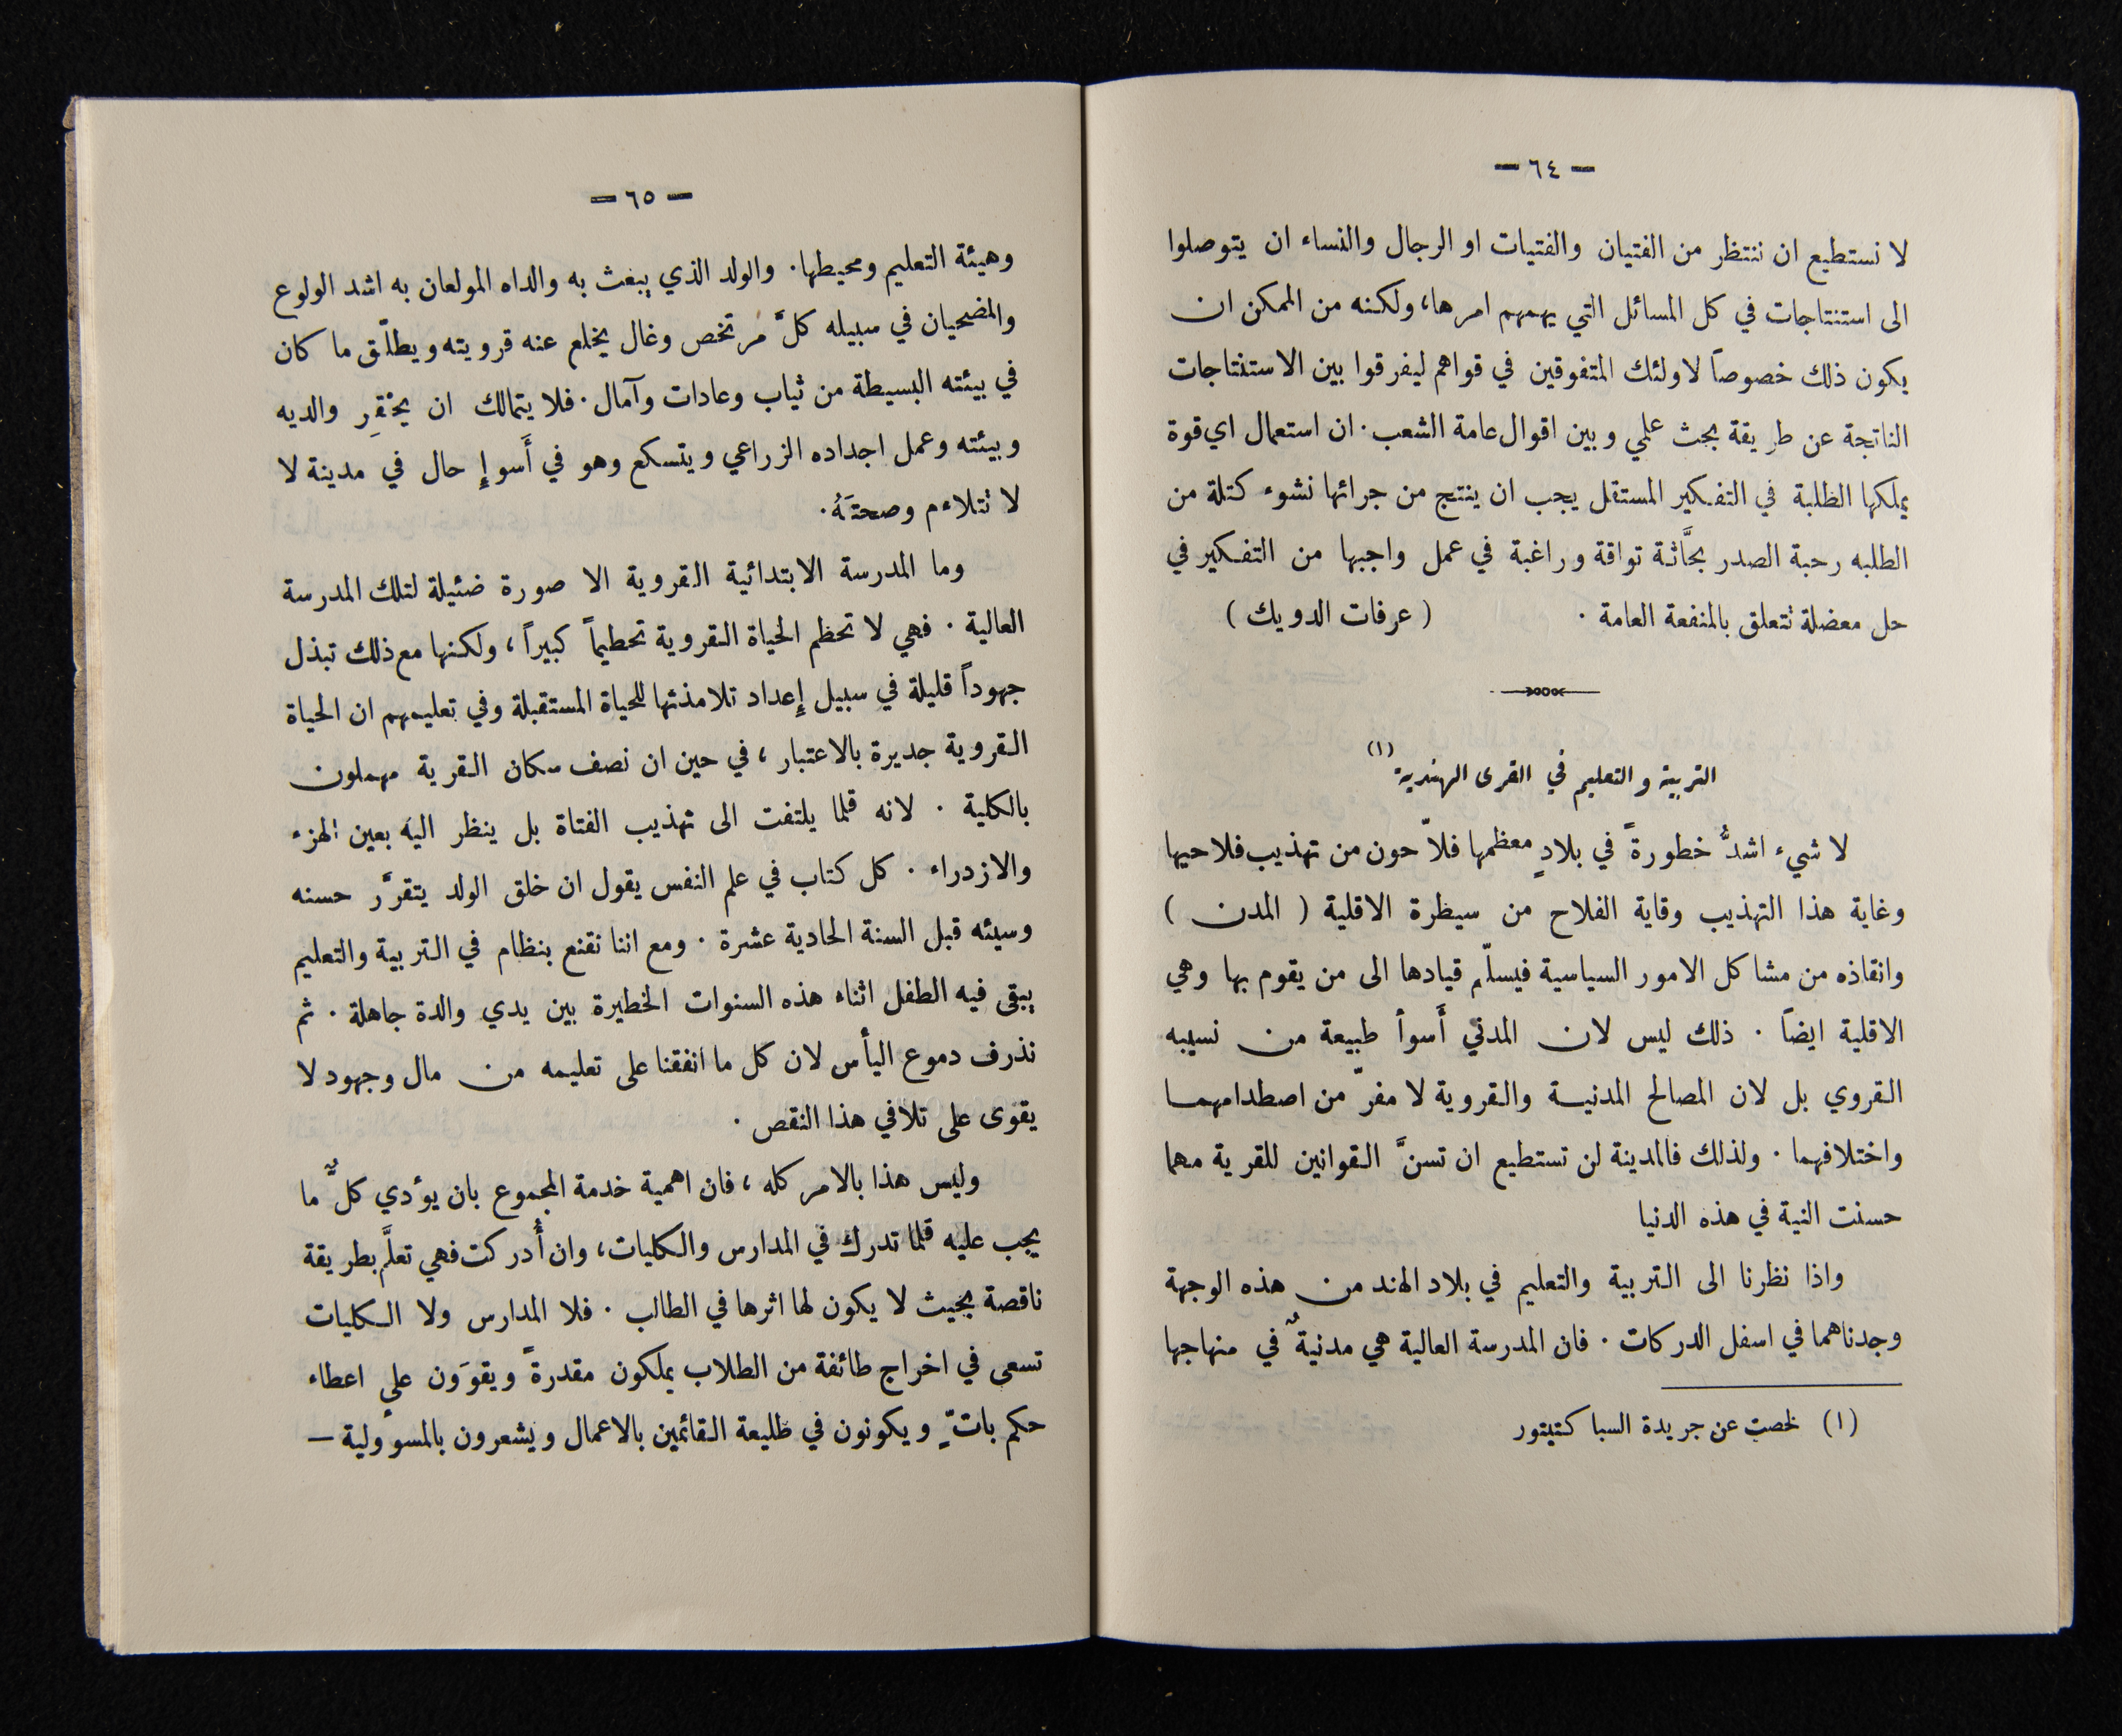 — ٦٤ —
لا نستطيع ان ننتظر من الفتيان والفتيات او الرجال والنساء ان يتوصلوا
الى استنتاجات في كل المسائل التي يهمهم امرها، ولكنه من الممكن ان
يكون ذلك خصوصاً لاولئك المتفوقين في قواهم ليفرقوا بين الاستنتاجات
الناتجة عن طريقة بحث علمي وبين اقوال عامة الشعب. ان استعمال اي قوة
يملكها الطلبة في التفكير المستقل يجب ان ينتج من جرائها نشوء كتلة من
الطلبه رحبة الصدر بحَّاثة تواقة وراغبة في عمل واجبها من التفكير في
حل معضلة تتعلق بالمنفعة العامة . ( عرفات الدويك )
التربية والتعليم في القرى الهندية (١)
لا شيء اشدُّ خطورةً في بلادٍ معظمها فلاّحون من تهذيب فلاحيها
وغاية هذا التهذيب وقاية الفلاح من سيطرة الاقلية ( المدن )
وانقاذه من مشاكل الامور السياسية فيسلّم قيادها الى من يقوم بها وهي
الاقلية ايضاً . ذلك ليس لان المدني أَسوأ طبيعة من نسيبه
القروي بل لان المصالح المدنية والقروية لا مفرّ من اصطدامهما
واختلافهما . ولذلك فالمدينة لن تستطيع ان تسنَّ القوانين للقرية مهما
حسنت النية في هذه الدنيا
واذا نظرنا الى التربية والتعليم في بلاد الهند من هذه الوجهة
وجدناهما في اسفل الدركات . فان المدرسة العالية هي مدنيةٌ في منهاجها
(١) لخصت عن جريدة السباكتيتور
— ٦٥ —
وهيئة التعليم ومحيطها. والولد الذي يبعث به والداه المولعان به اشد الولوع
والمضحيان في سبيله كلَّ مرتخص وغال يخلع عنه قرويته ويطلّق ما كان
في بيئته البسيطة من ثياب وعادات وآمال. فلا يتمالك ان يحتقِر والديه
وبيئته وعمل اجداده الزراعي ويتسكع وهو في أَسوإِ حال في مدينة لا
لا تتلاءم وصحتَهُ.
وما المدرسة الابتدائية القروية الا صورة ضئيلة لتلك المدرسة
العالية . فهي لا تحطم الحياة القروية تحطيماً كبيراً، ولكنها مع ذلك تبذل
جهوداً قليلة في سبيل إِعداد تلامذتها للحياة المستقبلة وفي تعليمهم ان الحياة
القروية جديرة بالاعتبار، في حين ان نصف سكان القرية مهملون
بالكلية . لانه قلما يلتفت الى تهذيب الفتاة بل ينظر اليه بعين الهزء
والازدراء . كل كتاب في علم النفس يقول ان خلق الولد يتقرَّر حسنه
وسيئه قبل السنة الحادية عشرة . ومع اننا نقنع بنظام في التربية والتعليم
يبقى فيه الطفل اثناء هذه السنوات الخطيرة بين يدي والدة جاهلة . ثم
نذرف دموع اليأس لان كل ما انفقنا على تعليمه من مال وجهود لا
يقوى على تلافي هذا النقص .
وليس هذا بالامر كله، فان اهمية خدمة المجموع بان يؤدي كلٌّ ما
يجب عليه قلما تدرك في المدارس والكليات، وان أُدركت فهي تعلَّم بطريقة
ناقصة بحيث لا يكون لها اثرها في الطالب . فلا المدارس ولا الكليات
تسعى في اخراج طائفة من الطلاب يملكون مقدرةً ويقوَون على اعطاء
حكم باتّ ويكونون في طليعة القائمين بالاعمال ويشعرون بالمسؤولية —